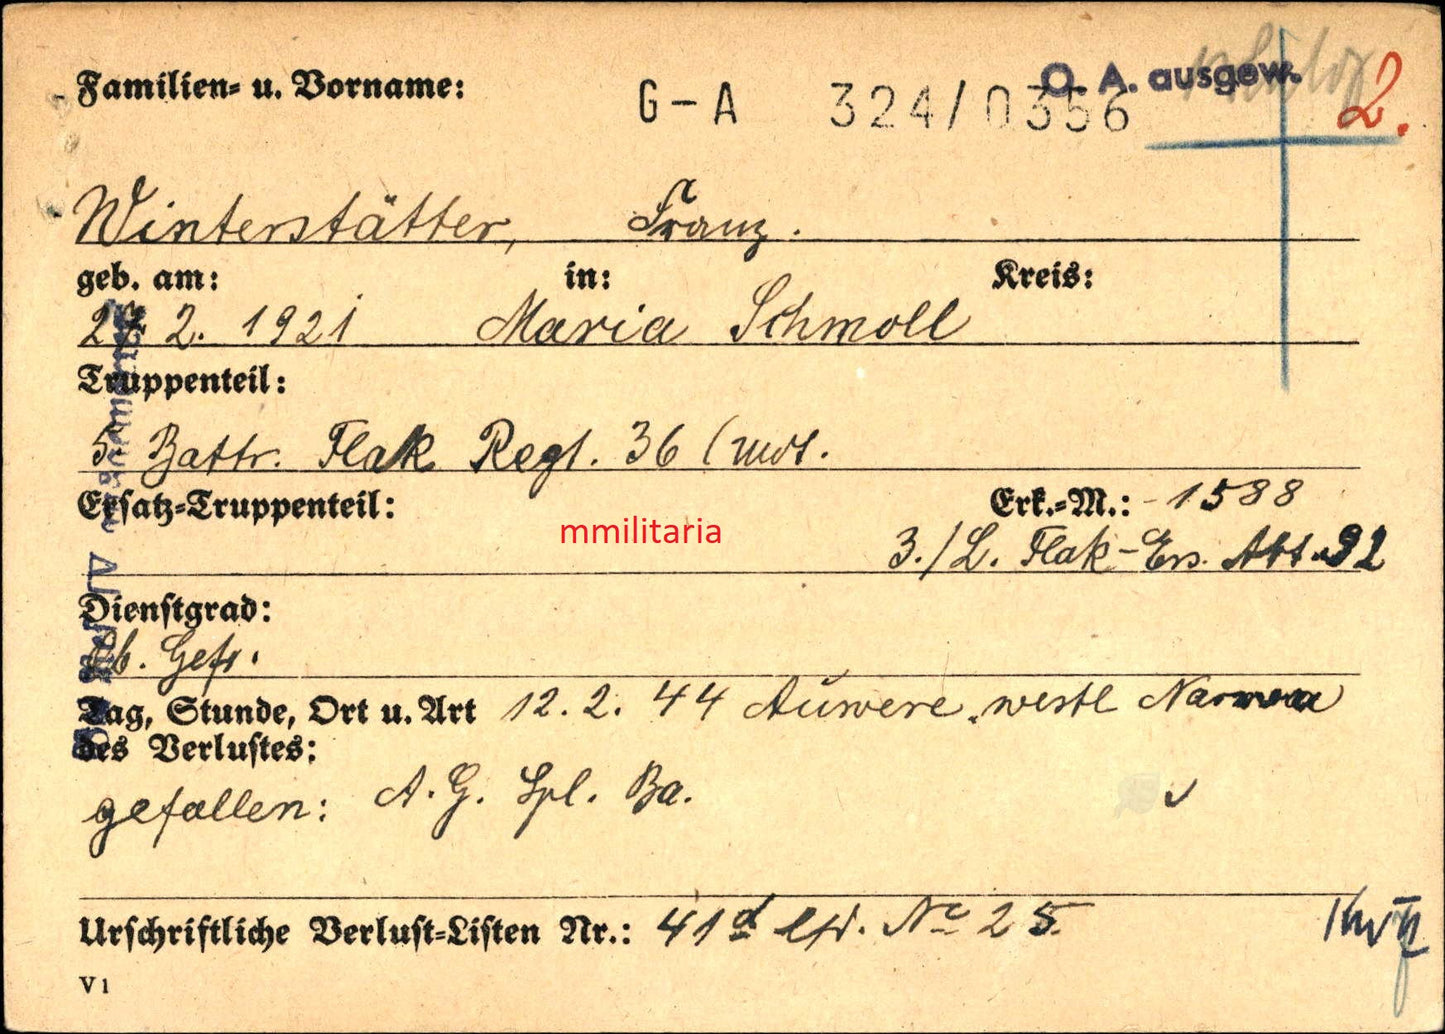 Familien- u. Vorname:
G-A 324/0356
O. A. ausgew.
2.
Winterstätter, Franz.
geb. am: in: Kreis:
27 2. 1921 Maria Schmoll
Truppenteil:
5. Battr. Flak Regt. 36 (mot.
Ersatz-Truppenteil: Erk.-M.: -1588
mmilitaria
3./L. Flak-Ers. Abt. 92
Dienstgrad:
Ob. Gefr.
Tag, Stunde, Ort u. Art 12. 2. 44 Auwere, westl Narwa
des Verlustes:
gefallen: A. G. Spl. Ba.
Urschriftliche Verlust-Listen Nr.: 41d lfd. No 25
V 1